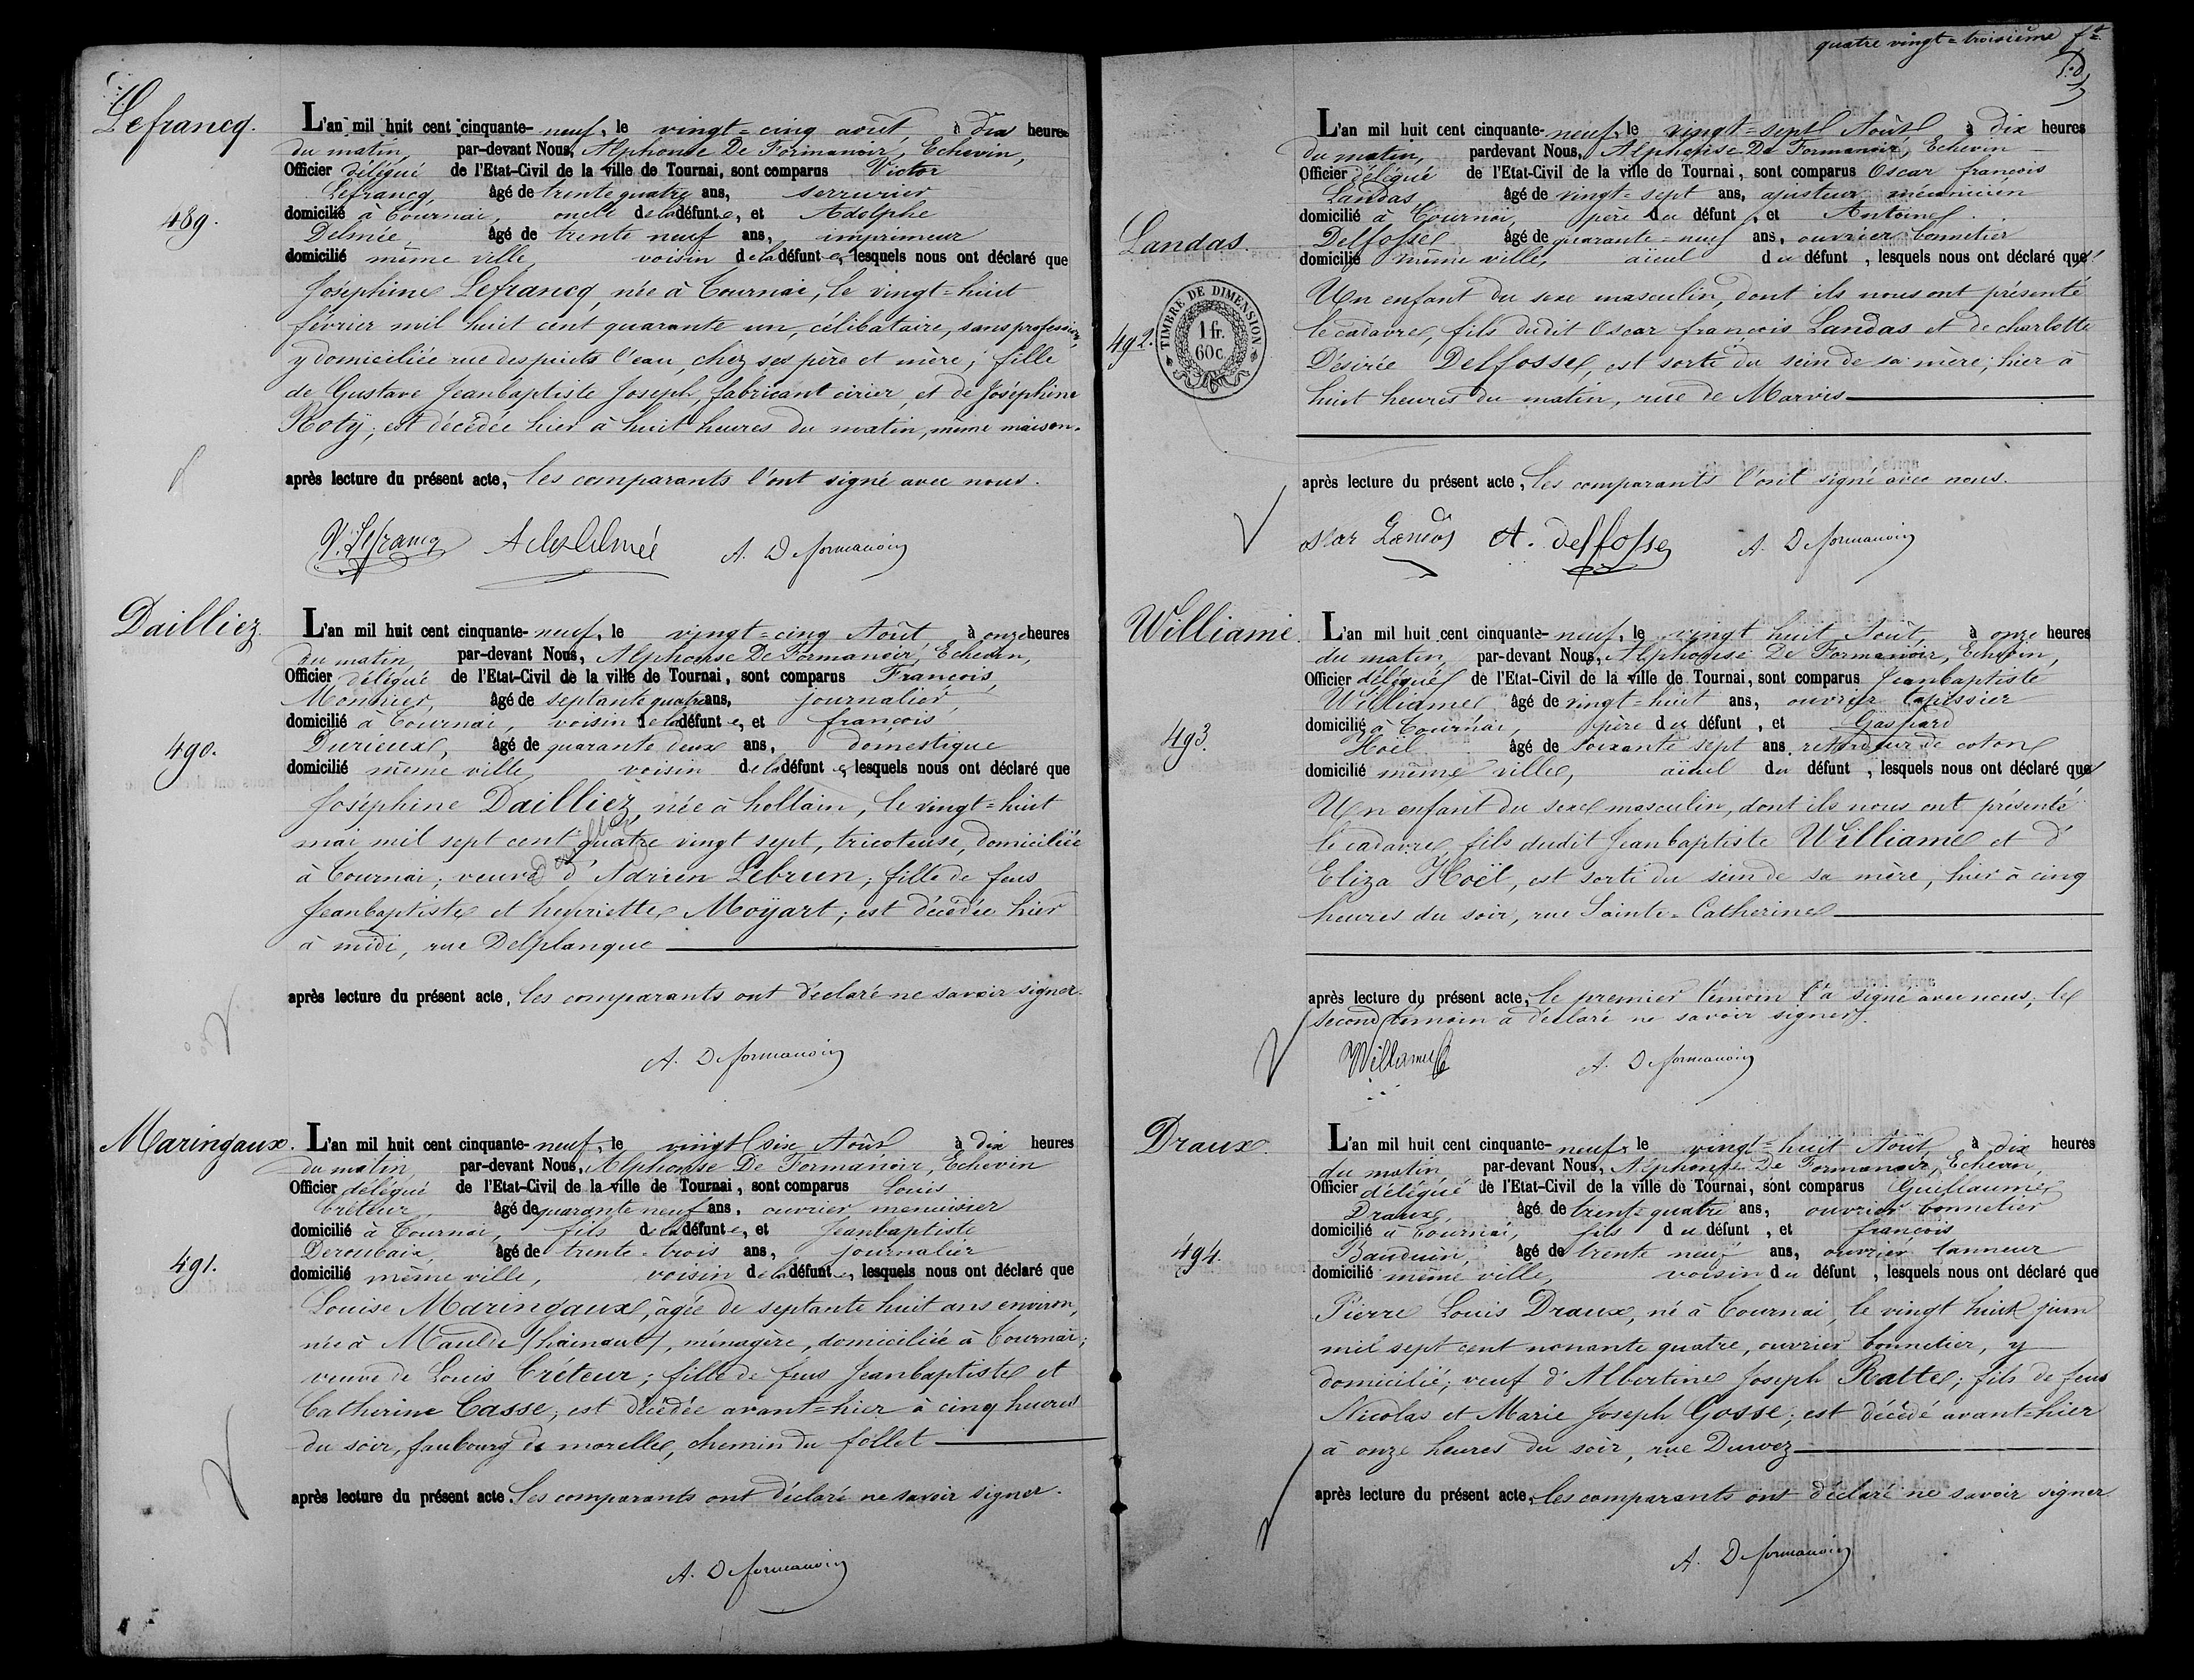 Lefrancq.
489.
L'an mil huit cent cinquante-neuf, le vingt=cinq août à dix heures
du matin, par-devant Nous, Alphonse De Formanoir, Echevin,
Officier délégué de l'Etat-Civil de la ville de Tournai, sont comparus Victor
Lefrancq, âgé de trente quatre ans, serrurier
domicilié à Tournai, oncle de la défunte, et Adolphe
Delmée âgé de trente neuf ans, imprimeur
domicilié même ville, voisin de la défunte, lesquels nous ont déclaré que
Joséphine Lefrancq, née à Tournai, le vingt=huit
février mil huit cent quarante un, célibataire, sans profession,
y domiciliée rue des puits l'eau, chez ses père et mère; fille
de Gustave Jeanbaptiste Joseph, fabricant cirier, et de Joséphine
Roty; est décédée hier à huit heures du matin, même maison.
après lecture du présent acte, les comparants l'ont signé avec nous.
V. Lefrancq Adelmée A. Deformanoir
Dailliez
490.
L'an mil huit cent cinquante-neuf, le vingt=cinq Août à onze heures
du matin, par-devant Nous, Alphonse De Formanoir, Echevin,
Officier délégué de l'Etat-Civil de la ville de Tournai, sont comparus François
Monnier, âgé de septante quatre ans, journalier,
domicilié à Tournai, voisin de la défunte, et françois
Durieux, âgé de quarante deux ans, domestique
domicilié même ville, voisin de la défunte, lesquels nous ont déclaré que
Joséphine Dailliez, née à hollain, le vingt=huit
mai mil sept cent quatre vingt sept, tricoteuse, domiciliée
à Tournai; veuve d'Adrien Lebrun; fille de feus
Jeanbaptiste et henriette Moyart; est décédée hier
à midi, rue Delplanque
après lecture du présent acte, les comparants ont déclaré ne savoir signer.
A. Deformanoir
Maringaux.
491.
L'an mil huit cent cinquante-neuf, le vingt six Août à dix heures
du matin, par-devant Nous, Alphonse De Formanoir, Echevin
Officier délégué de l'Etat-Civil de la ville de Tournai, sont comparus Louis
Créteur, âgé de quarante neuf ans, ouvrier menuisier
domicilié à Tournai, fils de la défunte, et Jeanbaptiste
Deroubaix, âgé de trente-trois ans, journalier
domicilié même ville, voisin de la défunte, lesquels nous ont déclaré que
Louise Maringaux, âgée de septante huit ans environ,
née à Maulde (hainaut), ménagère, domiciliée à Tournai;
veuve de Louis Créteur; fille de feus Jeanbaptiste et
Catherine Casse; est décédée avant=hier à cinq heures
du soir, faubourg de morelle, chemin du follet
après lecture du présent acte les comparants ont déclaré ne savoir signer.
A. Deformanoir
quatre vingt=troisième ft
Landas.
492.
TIMBRE DE DIMENSION
1 fr.
60c.
L'an mil huit cent cinquante-neuf, le vingt=sept Août à dix heures
du matin, pardevant Nous, Alphonse De Formanoir, Echevin
Officier délégué de l'Etat-Civil de la ville de Tournai, sont comparus Oscar françois
Landas, âgé de vingt=sept ans, ajusteur mécanicien
domicilié à Tournai, père du défunt, et Antoine
Delfosse, âgé de quarante-neuf ans, ouvrier bonnetier
domicilié même ville, aïeul du défunt, lesquels nous ont déclaré que
Un enfant du sexe masculin, dont ils nous ont présenté
le cadavre, fils dudit Oscar françois Landas et de charlotte
Désirée Delfosse, est sorti du sein de sa mère, hier à
huit heures du matin, rue de Marvis
après lecture du présent acte, les comparants l'ont signé avec nous.
Oscar Landas A. delfosse A. Deformanoir
Williame.
493.
L'an mil huit cent cinquante-neuf, le vingt huit Août, à onze heures
du matin, par-devant Nous, Alphonse De Formanoir, Echevin,
Officier délégué de l'Etat-Civil de la ville de Tournai, sont comparus Jeanbaptiste
Williame, âgé de vingt-huit ans, ouvrier tapissier
domicilié à Tournai, père du défunt, et Gaspard
Hoël âgé de soixante sept ans, retordeur de coton
domicilié même ville, aïeul du défunt, lesquels nous ont déclaré que
Un enfant du sexe masculin, dont ils nous ont présenté
le cadavre, fils dudit Jeanbaptiste Williame et d'
Eliza Hoël, est sorti du sein de sa mère, hier à cinq
heures du soir, rue Sainte-Catherine
après lecture du présent acte, le premier témoin l'a signé avec nous, le
second témoin a déclaré ne savoir signer.
Williame A. Deformanoir
Draux.
494.
L'an mil huit cent cinquante-neuf, le vingt=huit Août, à dix heures
du matin par-devant Nous, Alphonse De Formanoir, Echevin,
Officier délégué de l'Etat-Civil de la ville de Tournai, sont comparus Guillaume
Draux, âgé de trente-quatre ans, ouvrier bonnetier
domicilié à Tournai, fils du défunt, et françois
Bauduin, âgé de trente neuf ans, ouvrier tanneur
domicilié même ville, voisin du défunt, lesquels nous ont déclaré que
Pierre Louis Draux, né à Tournai, le vingt huit juin
mil sept cent nonante quatre, ouvrier bonnetier, y
domicilié; veuf d'Albertine Joseph Ratte; fils de feus
Nicolas et Marie Joseph Gosse; est décédé avant=hier
à onze heures du soir, rue Duwez
après lecture du présent acte, les comparants ont déclaré ne savoir signer
A. Deformanoir